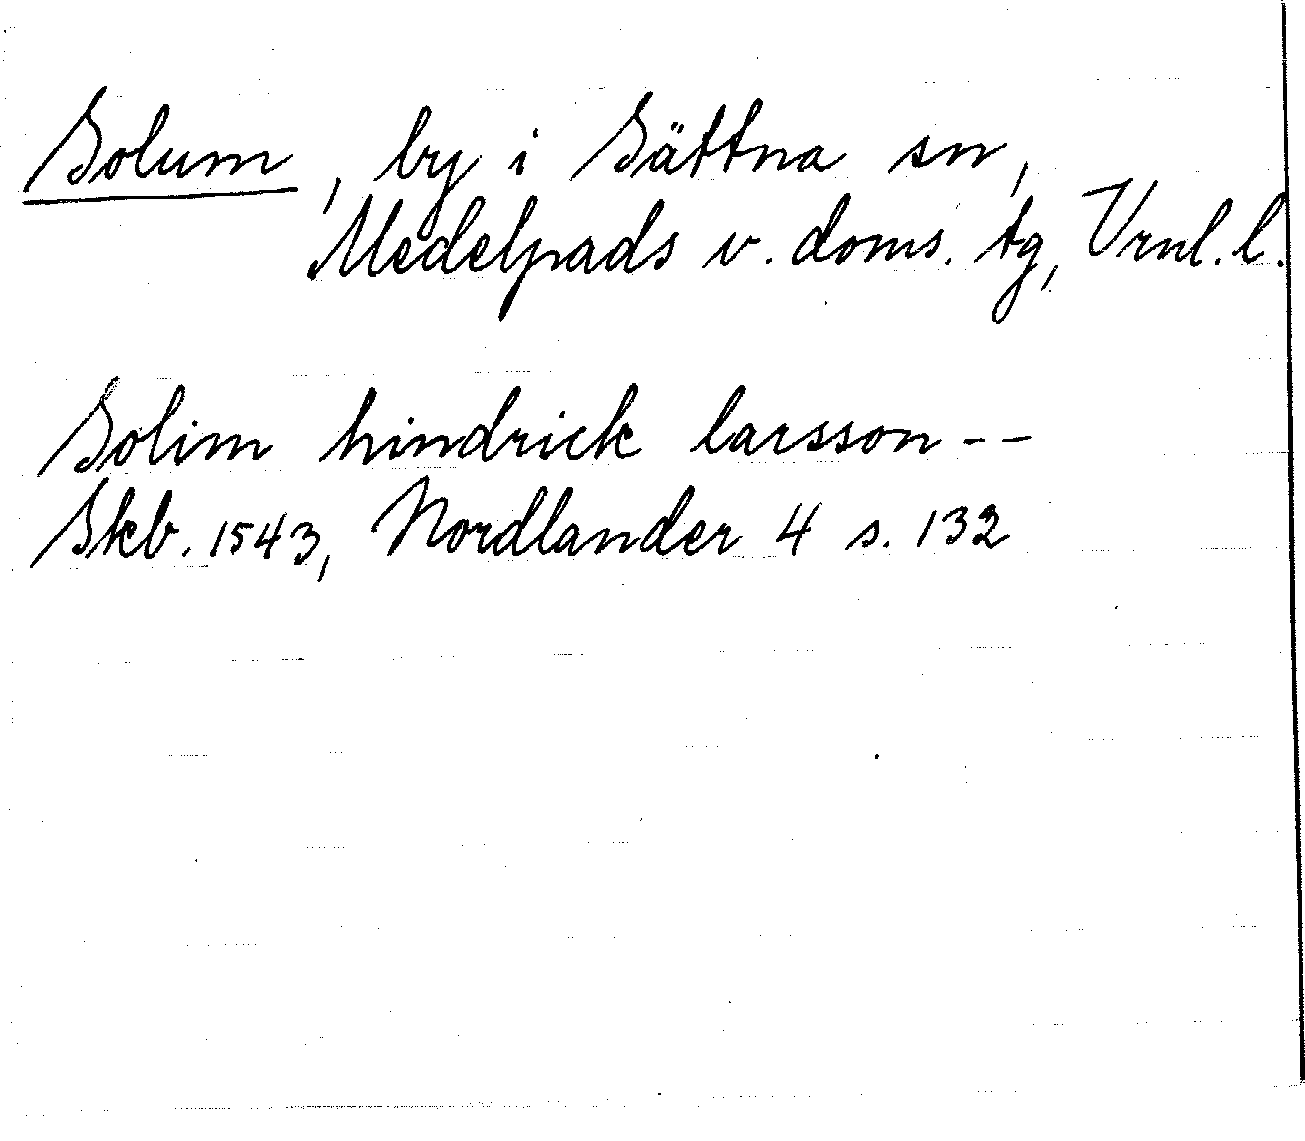 Solum, by i Sättna sn,
Medelpads v. doms. tg, Vrnl. l.
Solim hindrick larsson --
Skb. 1543, Nordlander 4 s. 132